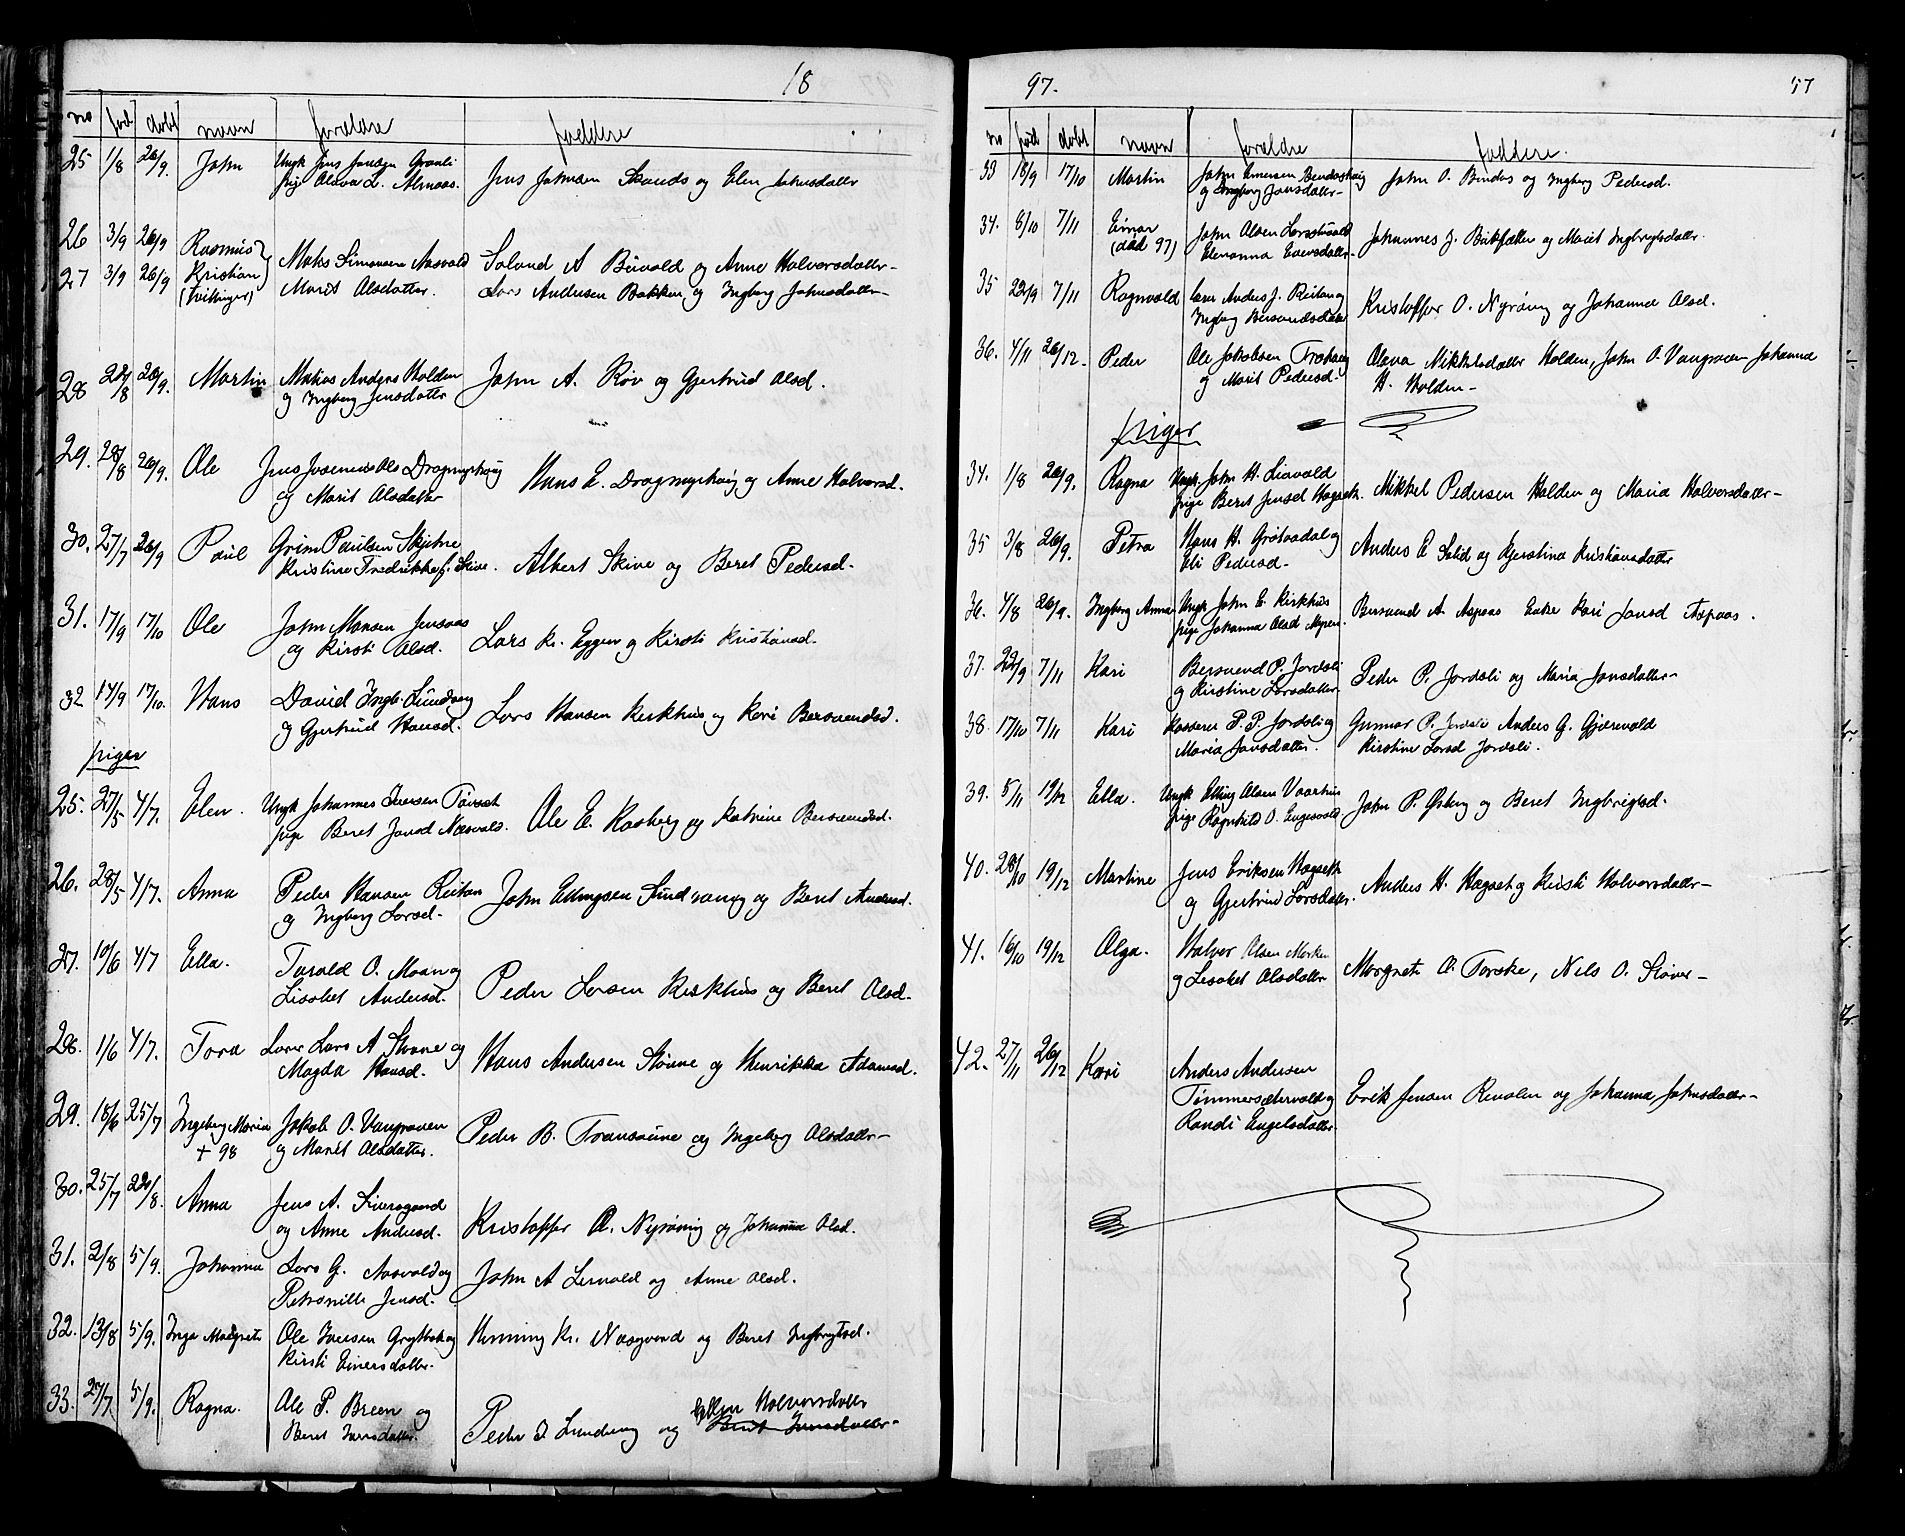 18
no fød døbt navn forældre faddere
25 1/8 26/9. John Ungk Jens Jonsen Graali
pige Olava L. Almaas. Jens Johnsen Skands og Elen Johnsdatter
26 3/9 26/9 Rasmus
27 3/9 26/9 Kristian Maks Simonsen Aasvold Solvud A Buvold og Anne Halvorsdatter
(tvillinger) Marit Olsdatter. Lars Andersen Bakken og Ingborg Johnsdatter
28 28/8 26/9. Martin Anders Holden John A. Röv og Gjertrud Olsd.
og Ingborg Jensdatter
29. 28/8 26/9. Ole Hans E. Dragmyrhaug og Anne Halvorsd.
og Marit Olsdatter
30. 27/7 26/9 Paul Grim Paulsen Skjetne
Kristine Fredrikke f. Skive. Albert Skive og Beret Pedersd.
31. 17/9 17/10 Ole John Monsen Jensaas
og Kirsti Olsd. Lars Kr. Eggen og Kirsti Kristiansd.
32 14/9 17/10. Hans David Ingb. Sundvang
og Gjertrud Hansd. Lars Hansen Kirkhus og Kari Bersvendsd.
piger
25. 27/5 4/7. Elen. Ungk Johannes Iversen Tamset
pige Beret Jonsd Næsvold. Ole E. Kosberg og Katrine Bersvendsd.
26. 28/5 4/7. Anna Peder Hansen Reitan
og Ingborg Larsd. John Ellingsen Sundvang og Beret Andersd.
27. 10/6 4/7 Ella. Tarald O. Moan og
Lisabet Andersd. Peder Larsen Kirkhus og Beret Olsd.
28. 1/6 4/7. Tora Lærer Lars A Stoene og
Magda Hansd. Hans Andersen Stoene og Henrikka Adamsd.
29. 18/6 25/7 Ingeborg Maria Jakob O. Vangraven
+ 98 og Marit Olsdatter. Peder B. Fransaune og Ingeborg Olsdatter
30. 25/7 22/8. Anna Jens A.
og Anne Andersd. Kristoffer O. Nyröning og Johanna Olsd.
31. 2/8 5/9. Johanna Lars G. Aasvold og
Petronille Jensd. John A Lervold og Anne Olsd.
32. 13/8 5/9. Inga Margrete Ole Iversen Grytbak og
Kirsti Einersdatter. Henning Kr. Næsgrend og Beret Ingbrigtsd.
33. 27/7 5/9. Ragna. Ole P. Breen og Ellen Halvorsdatter
Beret Iversdatter. Peder I Lundberg og Beret Iversdatter
97. 57
no fød døbt navn forældre faddere.
33 18/9 17/10 Martin John
og Ingborg Jonsdatter John O. Bendos og Ingborg Pedersd.
34. 8/10 7/11 Einar John Olsen
(død 97) Johannes J. og Marit Ingbrigtsdatter.
35 22/9 7/11 Ragnvald Lærer Anders J. Reitan og
Ingborg Bersvendsdatter Kristoffer O. Nyröning og Johanna Olsd.
36. 4/11 26/12. Peder Ole Jakobsen Olava Mikkelsdatter Holden, John O. Vangraven Johanna
og Marit Pedersd. H. Holden
piger
34. 1/8 26/9. Ragna Ungk. John H. Liavold
pige Beret Jensd Hagseth. Mikkel Pedersen Holden og Maria Halvorsdatter
35 3/8 26/9. Petra Hans H. Grötaadal og
Eli Pedersd Anders E Selid og Kjerstina Kristiansdatter
36. 4/8 26/9. Ingborg Anna Ungk John E. Kirkhus
pige Johanna Olsd Myren. Bersvend A. Aspaas Enke Kari Jonsd Aspaas.
37. 22/9 7/11 Kari Bersvend P. Jordsli
og Kirstine Larsdatter Peder P. Jordsli og Maria Jonsdatter
38. 17/10 7/11 Kari Kasserer P. P. Jordsli og Gunnar P. Jordsli Anders G. Gjærevold
Maria Jonsdatter. Kirstine Larsd Jordsli.
39. 5/11 19/12 Ella. Ungk Elling Olsen Vaarhus
pige Ragnhild O. Engesvold John P. Østby og Beret Ingbrigtsd.
40. 28/10 19/12 Martine Jens Eriksen Hagseth
og Gjertrud Larsdatter. Anders H. Hagset og Kirsti Halvorsdatter
41. 16/10 19/12 Olga. Halvor Olsen Morken
og Lisabet Olsdatter Margrete O. Torske, Nils O. Stövne
42. 27/11 26/12 Kari Anders Andersen
Timmersætervold og Erik Jensen Renolen og Johanna Johnsdatter
Randi Engelsdatter